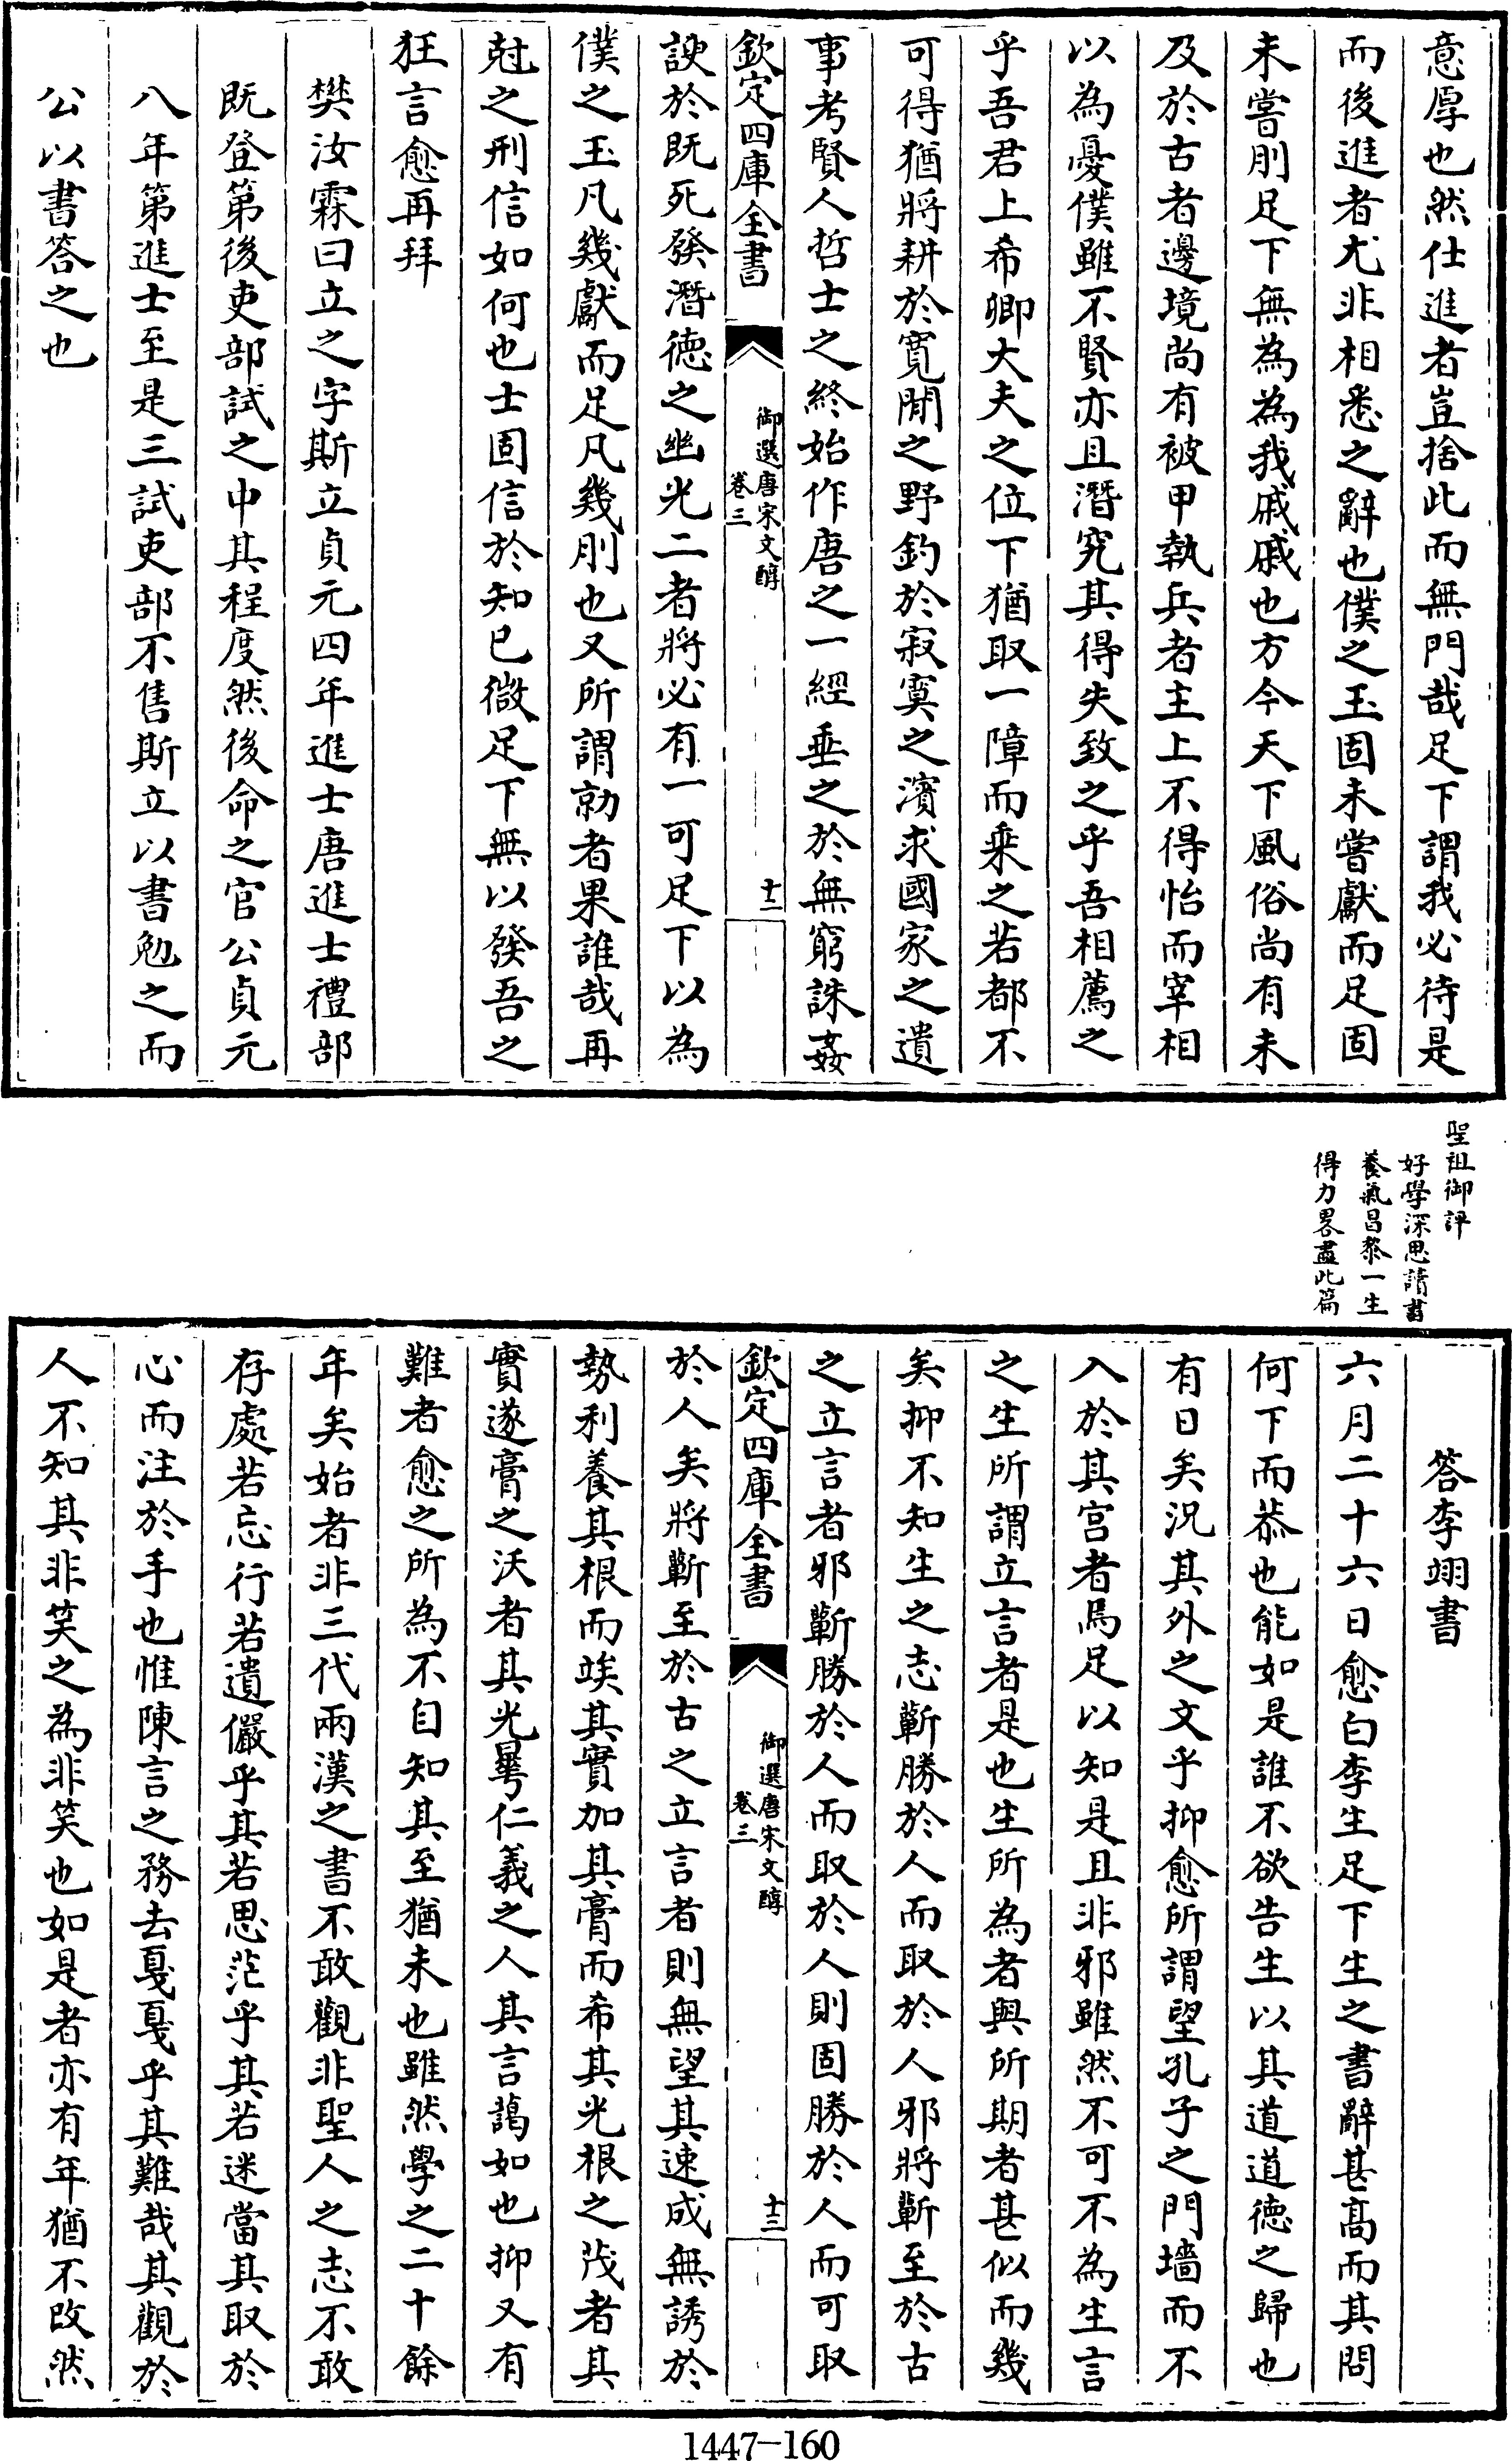 意厚也然仕進者豈捨此而無門哉足下謂我必待是
而後進者尤非相悉之辭也僕之玉固未嘗獻而足固
未嘗刖足下無為為我戚戚也方今天下風俗尚有未
及於古者邊境尚有被甲執兵者主上不得怡而宰相
以為憂僕雖不賢亦且潛究其得失致之乎吾相薦之
乎吾君上希卿大夫之位下猶取一障而乘之若都不
可得猶將耕於寬閒之野釣於寂寞之濱求國家之遺
事考賢人哲士之終始作唐之一經垂之於無窮誅姦
欽定四庫全書
御選唐宋文醇
卷三
十二
諛於既死發潛德之幽光二者將必有一可足下以為
僕之玉凡幾獻而足凡幾刖也又所謂勍者果誰哉再
尅之刑信如何也士固信於知已微足下無以發吾之
狂言愈再拜
樊汝霖曰立之字斯立貞元四年進士唐進士禮部
既登第後吏部試之中其程度然後命之官公貞元
八年第進士至是三試吏部不售斯立以書勉之而
公以書答之也
聖祖御評
好學深思讀書
養氣昌黎一生
得力畧盡此篇
答李翊書
六月二十六日愈白李生足下生之書辭甚高而其問
何下而恭也能如是誰不欲告生以其道道德之歸也
有日矣況其外之文乎抑愈所謂望孔子之門墻而不
入於其宮者焉足以知是且非邪雖然不可不為生言
之生所謂立言者是也生所為者與所期者甚似而幾
矣抑不知生之志蘄勝於人而取於人邪將蘄至於古
之立言者邪蘄勝於人而取於人則固勝於人而可取
欽定四庫全書
御選唐宋文醇
卷三
十三
於人矣將蘄至於古之立言者則無望其速成無誘於
勢利養其根而竢其實加其膏而希其光根之茂者其
實遂膏之沃者其光曅仁義之人其言藹如也抑又有
難者愈之所為不自知其至猶未也雖然學之二十餘
年矣始者非三代兩漢之書不敢觀非聖人之志不敢
存處若忘行若遺儼乎其若思茫乎其若迷當其取於
心而注於手也惟陳言之務去戛戛乎其難哉其觀於
人不知其非笑之為非笑也如是者亦有年猶不改然
1447-160